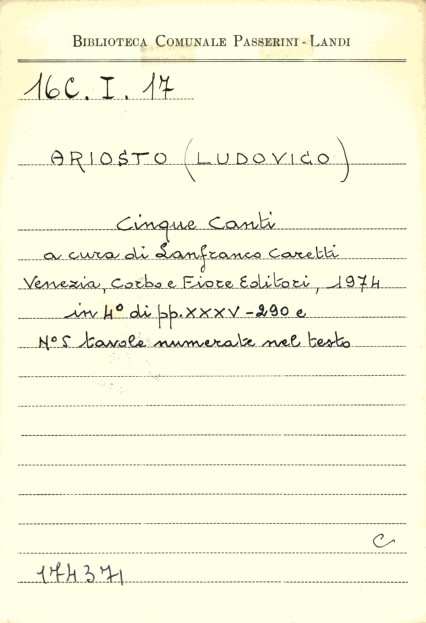 BIBLIOTECA COMUNALE PASSERINI - LANDI
16C. I. 17
ARIOSTO (LUDOVICO)
Cinque Canti
a cura di Lanfranco Caretti
Venezia, Corbo e Fiore Editori, 1974
in 4º di pp. XXXV - 290 e
Nº 5 tavole numerate nel testo
C
174371